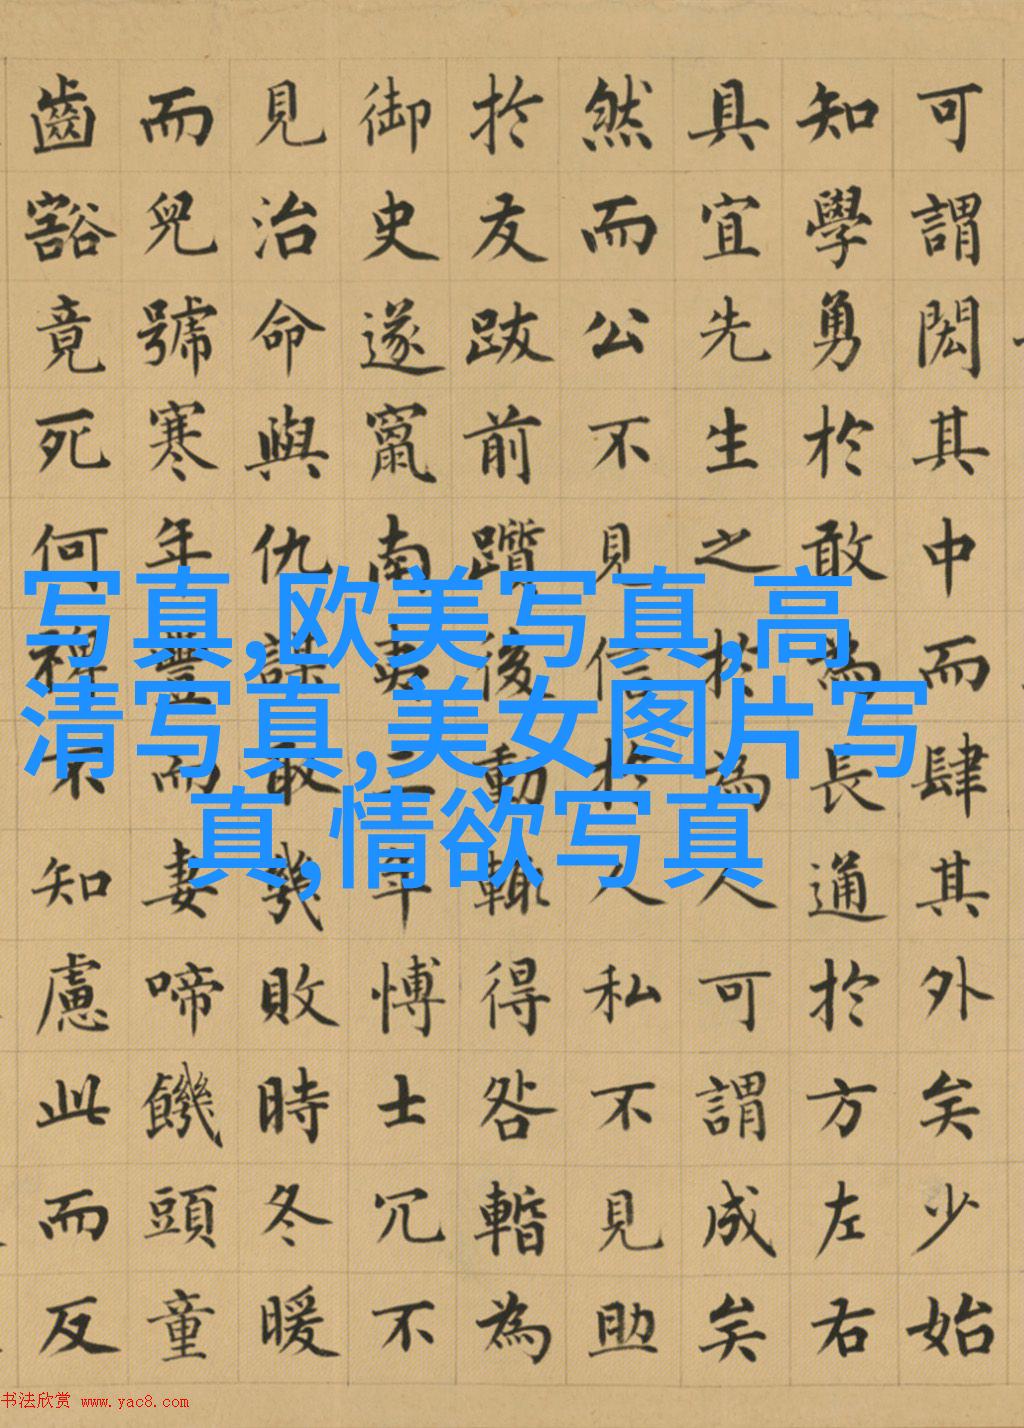 可謂閎其中而肆其外矣少始
知學勇於敢為長通於方左右
具宜先生之於為人可謂成矣
然而公不見信於人私不見助
於友跋前躓後動輒得咎暫為
御史遂竄南夷三年愽士冗不
見治命與仇謀取幾敗時冬暖
而兒號寒年豐而妻啼饑頭童
齒豁竟死何裨不知慮此而反
写真,欧美写真,高
清写真,美女图片写
真,情欲写真
书法欣赏 www.yac8.com